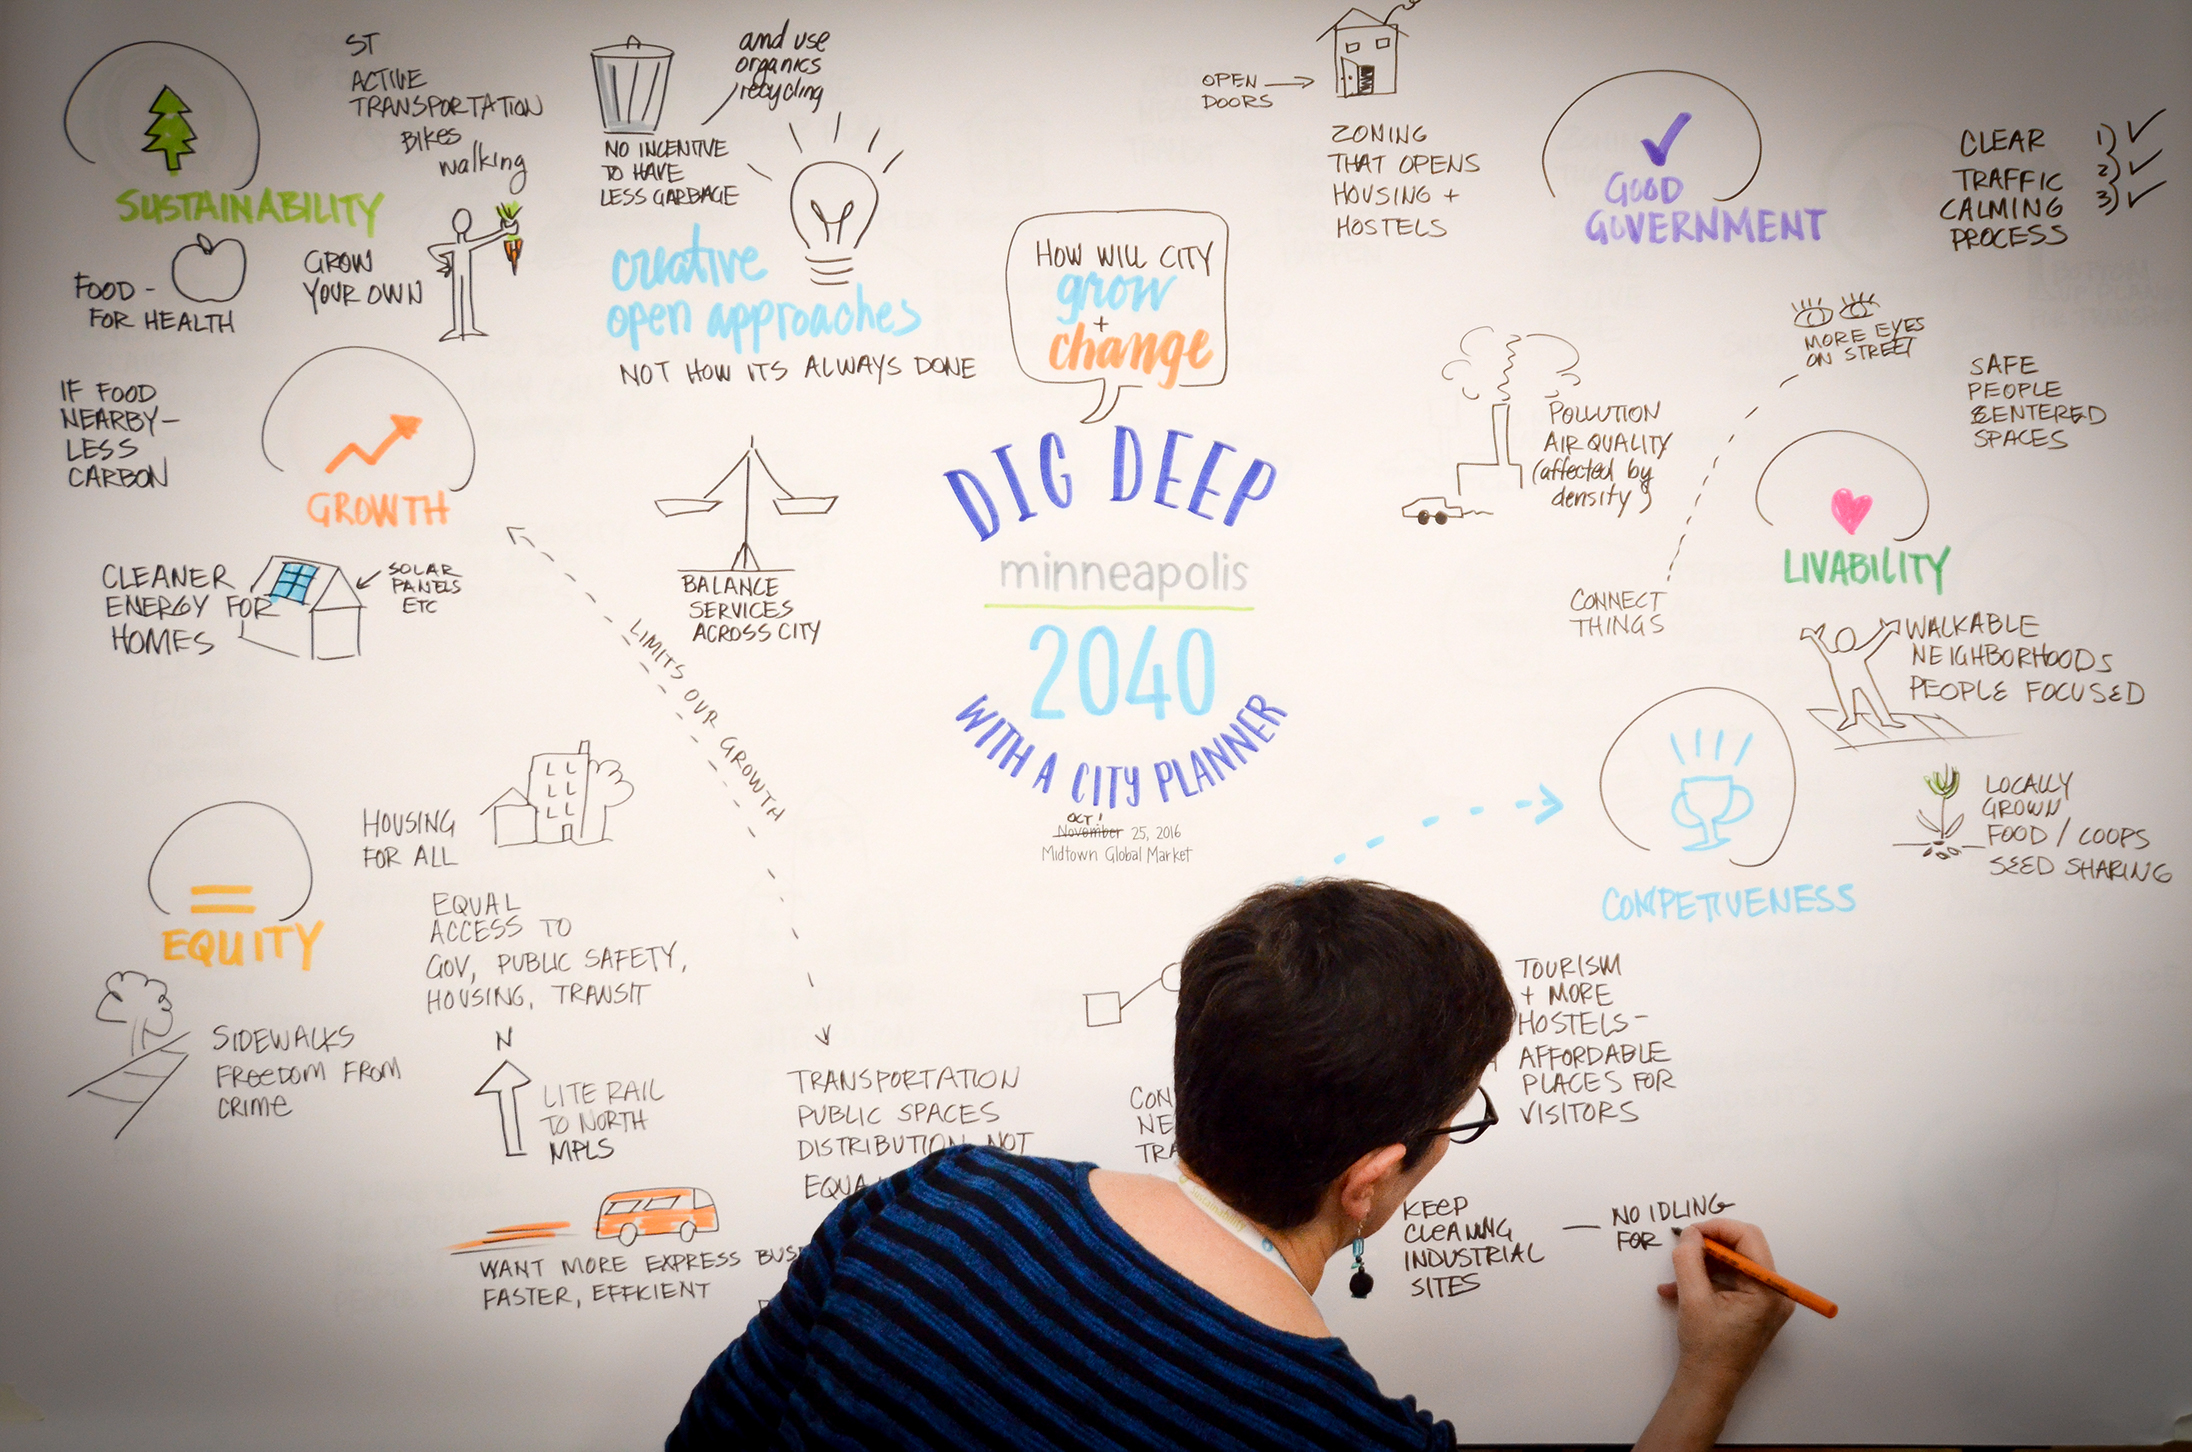 ST
ACTIVE
TRANSPORTATION
BIKES
walking
SUSTAINABILITY
FOOD -
FOR HEALTH
GROW
YOUR OWN
and use
organics
recycling
NO INCENTIVE
TO HAVE
LESS GARBAGE
creative
open approaches
NOT HOW ITS ALWAYS DONE
IF FOOD
NEARBY-
LESS
CARBON
GROWTH
CLEANER
ENERGY FOR
HOMES
SOLAR
PANELS
ETC
BALANCE
SERVICES
ACROSS CITY
LIMITS OUR GROWTH
HOW WILL CITY
grow
+
change
DIG DEEP
minneapolis
2040
WITH A CITY PLANNER
OCT!
November 25, 2016
Midtown Global Market
OPEN
DOORS
ZONING
THAT OPENS
HOUSING +
HOSTELS
GOOD
GOVERNMENT
CLEAR
TRAFFIC
CALMING
PROCESS
1) ✓
2) ✓
3) ✓
MORE EYES
ON STREET
SAFE
PEOPLE
CENTERED
SPACES
POLLUTION
AIR QUALITY
(affected by
density)
CONNECT
THINGS
LIVABILITY
WALKABLE
NEIGHBORHOODS
PEOPLE FOCUSED
LOCALLY
GROWN
FOOD / COOPS
SEED SHARING
COMPETIVENESS
EQUITY
HOUSING
FOR ALL
EQUAL
ACCESS TO
GOV, PUBLIC SAFETY,
HOUSING, TRANSIT
SIDEWALKS
FREEDOM FROM
CRIME
N
LITE RAIL
TO NORTH
MPLS
WANT MORE EXPRESS BUS
FASTER, EFFICIENT
TRANSPORTATION
PUBLIC SPACES
DISTRIBUTION NOT
EQUA
CON
NE
TRA
TOURISM
+ MORE
HOSTELS-
AFFORDABLE
PLACES FOR
VISITORS
KEEP
CLEANING
INDUSTRIAL
SITES
— NO IDLING
FOR
Sustainability